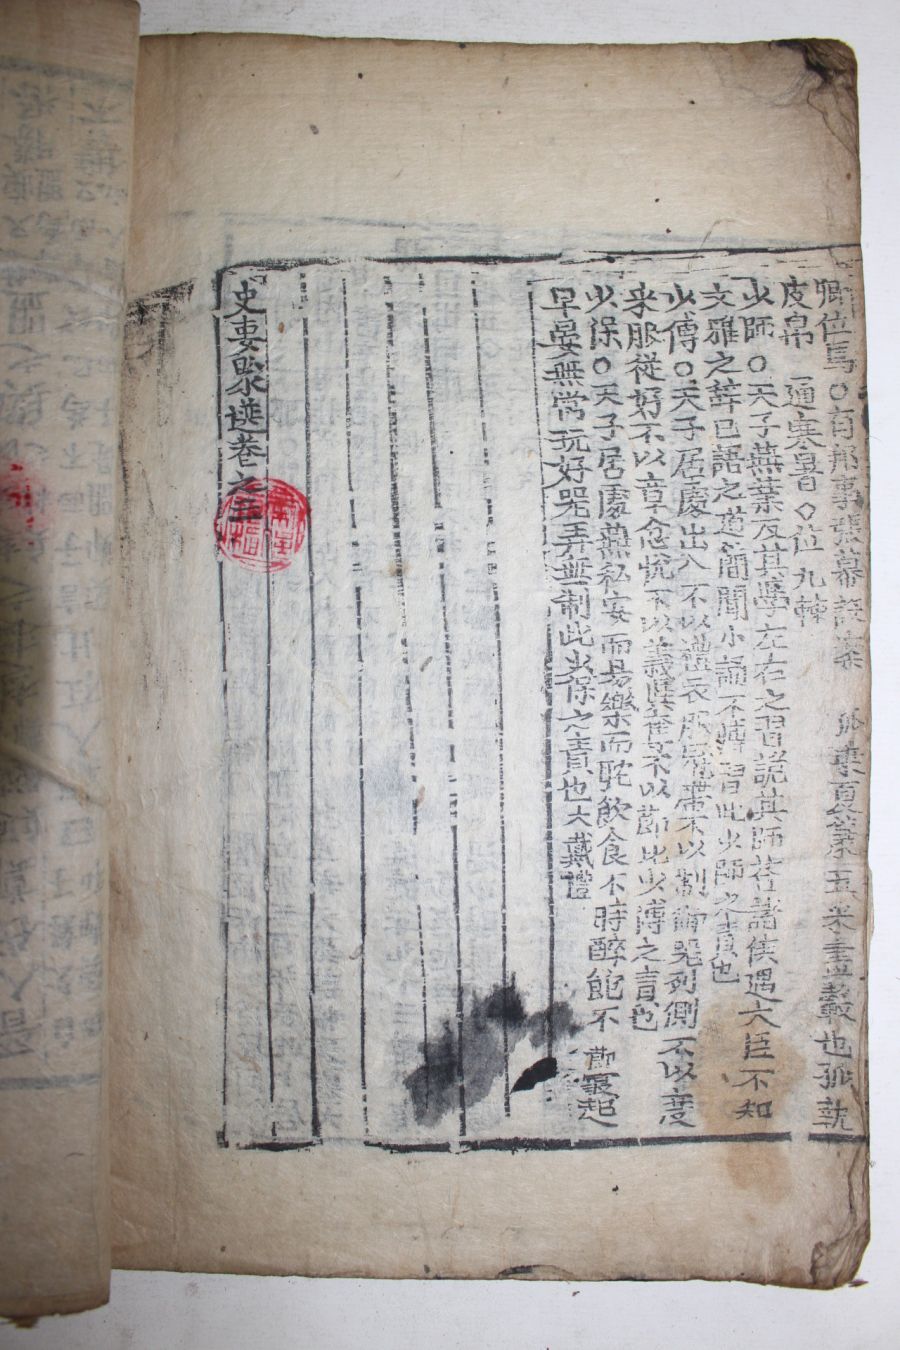 卿位焉○有邦事張幕設案 孤東 五 也孤執
皮帛 通寒暑○位九棘
少師○天子燕業反其學左右之習詭其師荅諸侯遇大臣不知
文雅之辞已語之道簡聞小誦不博習此少師之責也
少傅○天子居處出入不以禮衣服冠帶不以制御器列側不以度
采服從好不以章忿悅不以義與奪不以節此少傅之責也
少保○天子居處燕私安而易樂而耽飲食不時醉飽不 節寢起
早晏無常玩好器弄無制此少保之責也大戴禮
史要聚選卷之三